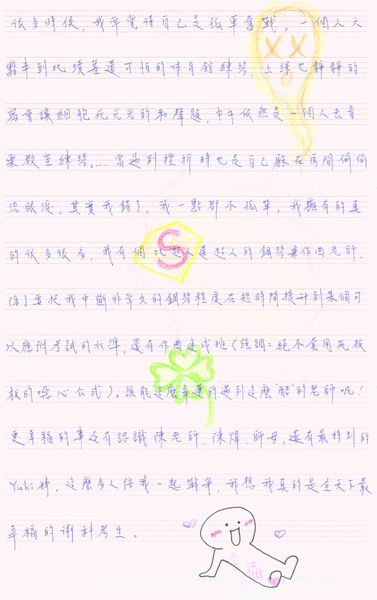 很多時候，我常覺得自己是孤軍奮戰。一個人六
點半到比墳墓還可怕的体育館練琴，上課也靜靜的
寫會讓細胞死光光的和聲題，中午依然是一個人去音
樂教室練琴.....當遇到挫折時也是自己躲在房間偷偷
流眼淚。其實我錯了，我一點都不孤單，我擁有的真
的很多很多，我有個比超人還超人的鋼琴兼作曲老師，
除了要把我中斷非常久的鋼琴程度在短時間提升到某個可
以應付考試的水準，還有作曲速成班(強調：絕不套用死板
板的噁心公式)，誰能這麼幸運的遇到這麼"酷"的老師呢！
更幸福的事還有認識陳老師、陳偉、師母，還有最特別的
Yuki姊，這麼多人陪我一起戰爭，我想我真的是全天下最
幸福的術科考生。
S